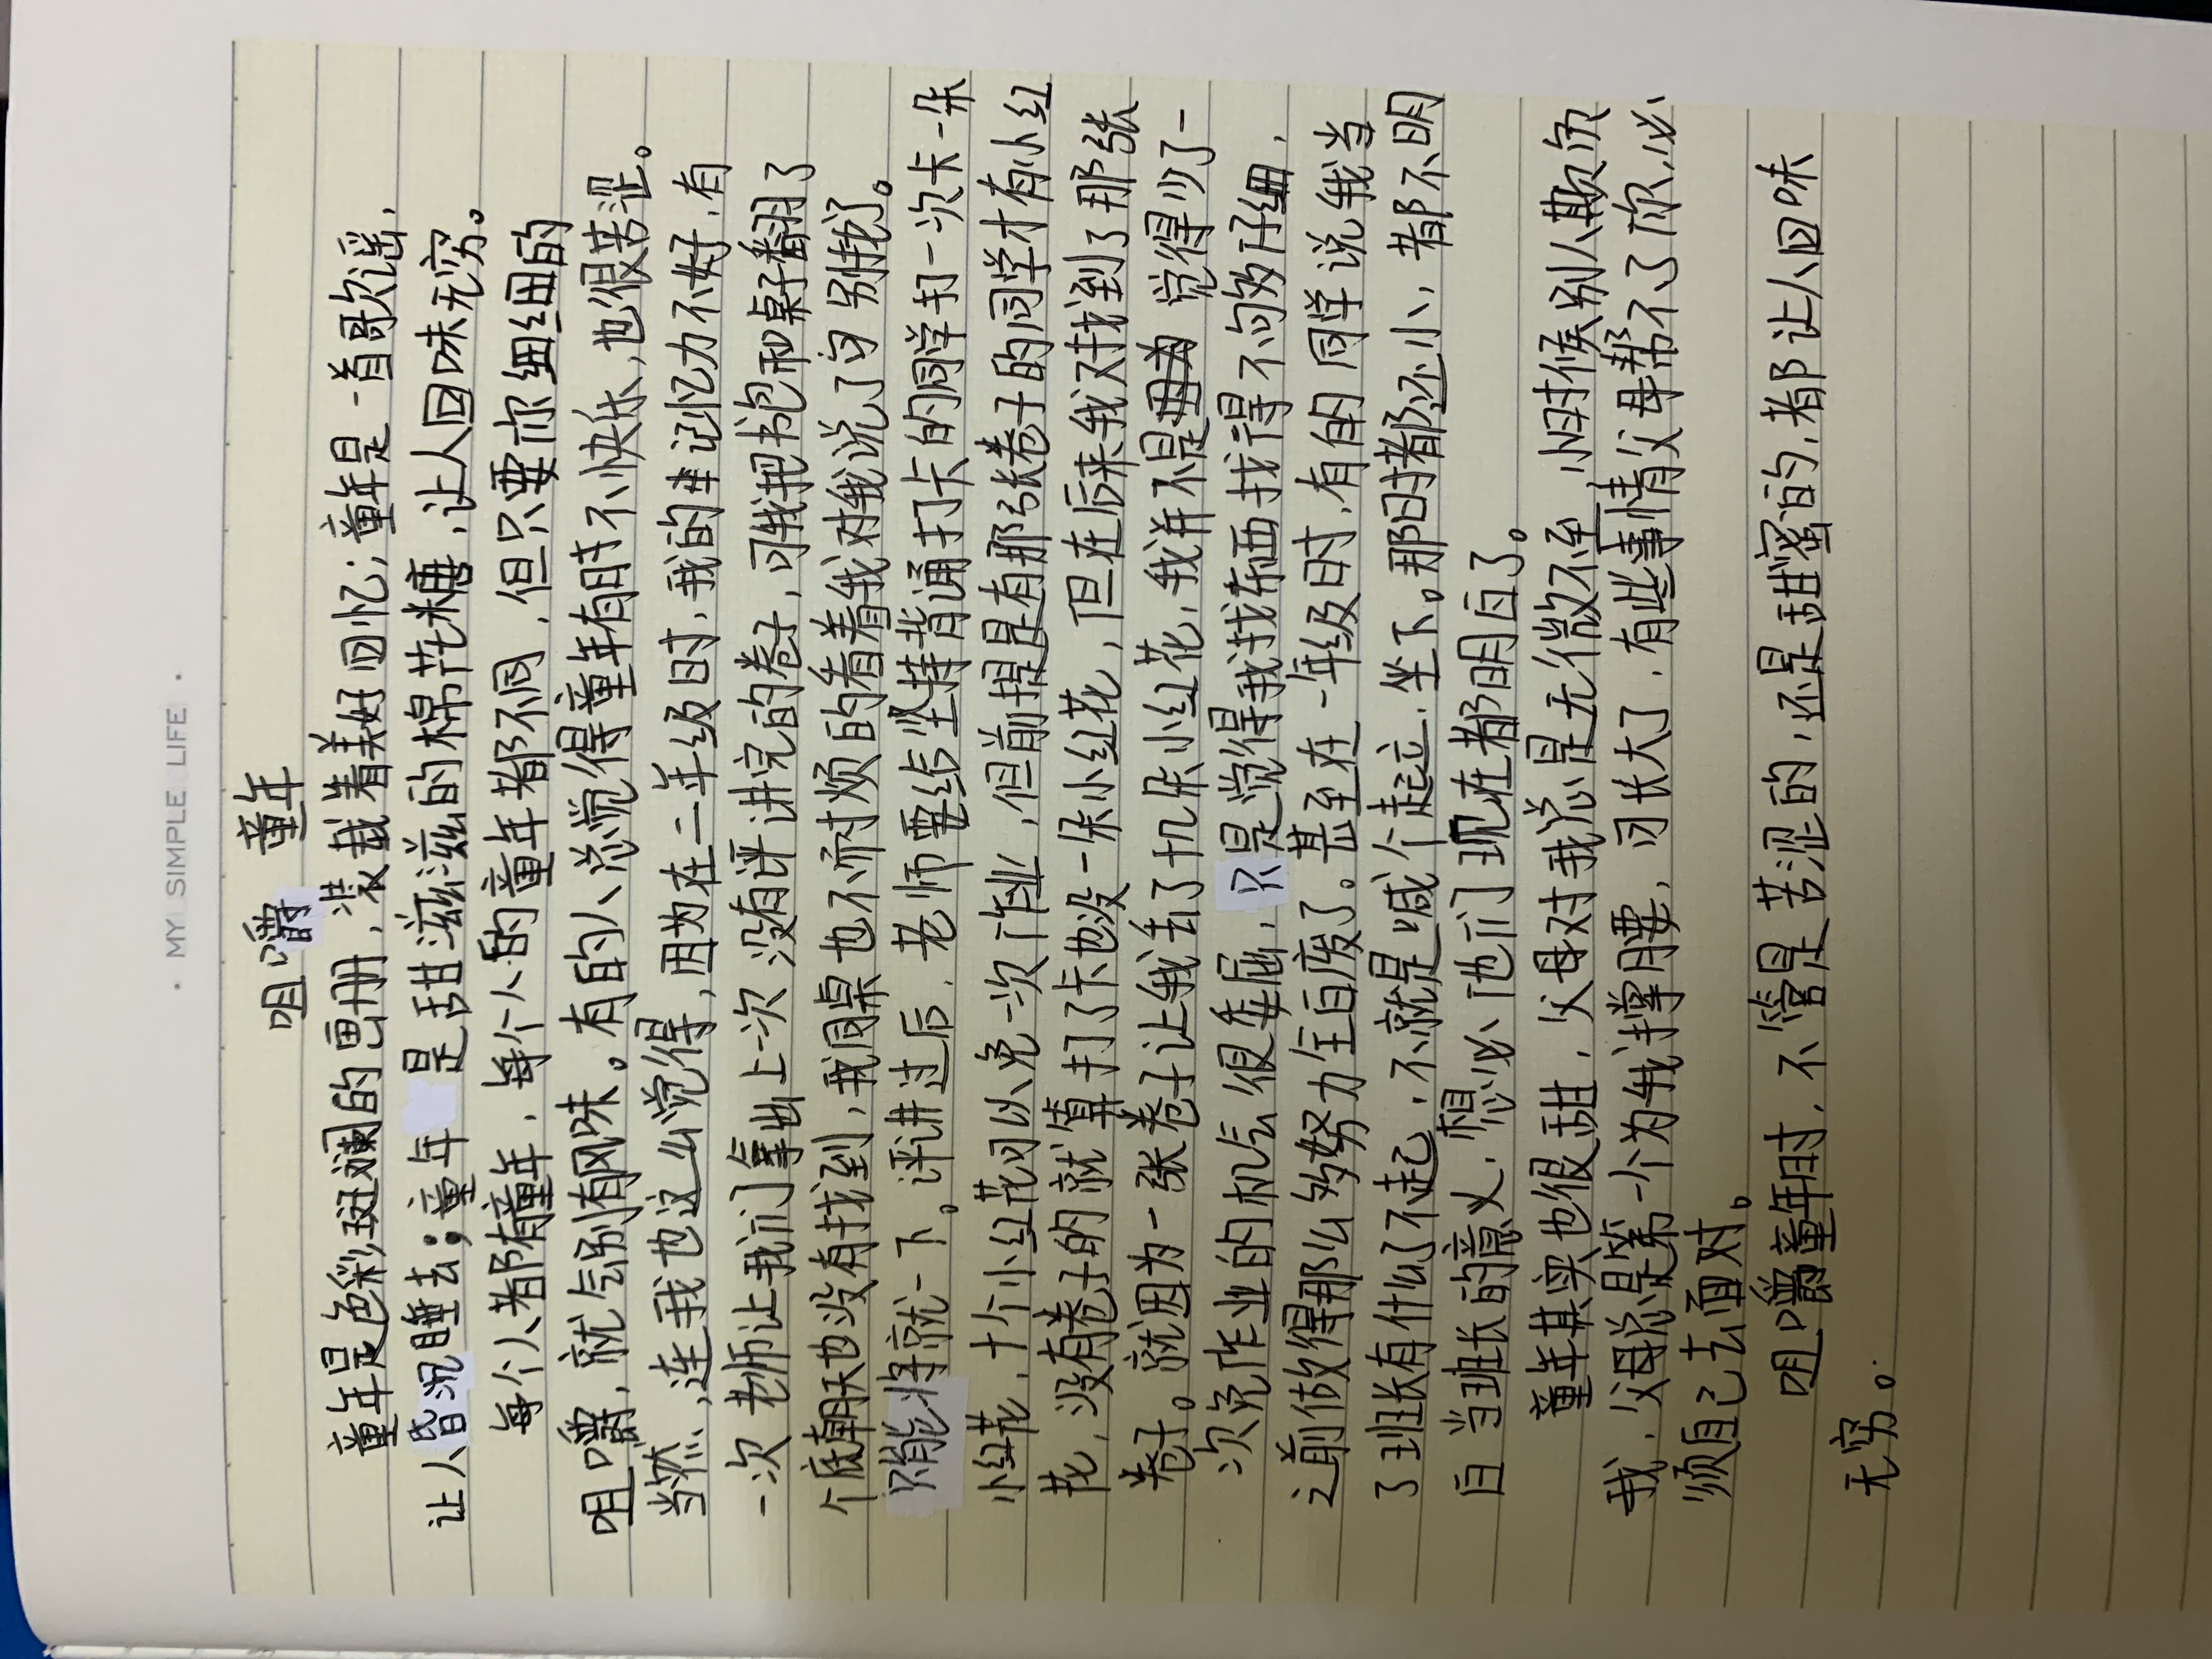 · MY SIMPLE LIFE ·
咀嚼 童年
童年是色彩斑斓的画册，装载着美好回忆；童年是一首歌谣，
让人昏沉睡去；童年是甜滋滋的棉花糖，让人回味无穷。
每个人都有童年，每个人的童年都不同，但只要你细细的
咀嚼，就会别有风味。有的人总觉得童年有时不快乐，也很苦涩。
当然，连我也这么觉得，因为在二年级时，我的记忆力不好，有
一次老师让我们拿出上次没有评讲完的卷子，可我把书包和桌子翻了
个底朝天也没有找到，我同桌也不耐烦的看着我对我说了句别找了。
只能将就一下。评讲过后，老师要给坚持背诵打卡的同学打一次卡一朵
小红花，十个小红花可以免一次作业，但前提是有那张卷子的同学才有小红
花，没有卷子的就算打了卡也没一朵小红花，但在后来我又找到了那张
卷子。就因为一张卷子让我丢了十几朵小红花，我并不是因为觉得少了一
次免作业的机会很委屈，只是觉得我找东西找得不够仔细，
之前做得那么多努力全白废了。甚至在一年级时，有的同学说我当
了班长有什么了不起，不就是喊个起立，坐下。那时都还小，都不明
白当班长的意义，想必他们现在都明白了。
童年其实也很甜，父母对我总是无微不至，小时候别人欺负
我，父母总是第一个为我撑腰，可长大了，有些事情父母帮不了你，必
须自己去面对。
咀嚼童年时，不管是苦涩的，还是甜蜜的，都让人回味
无穷。